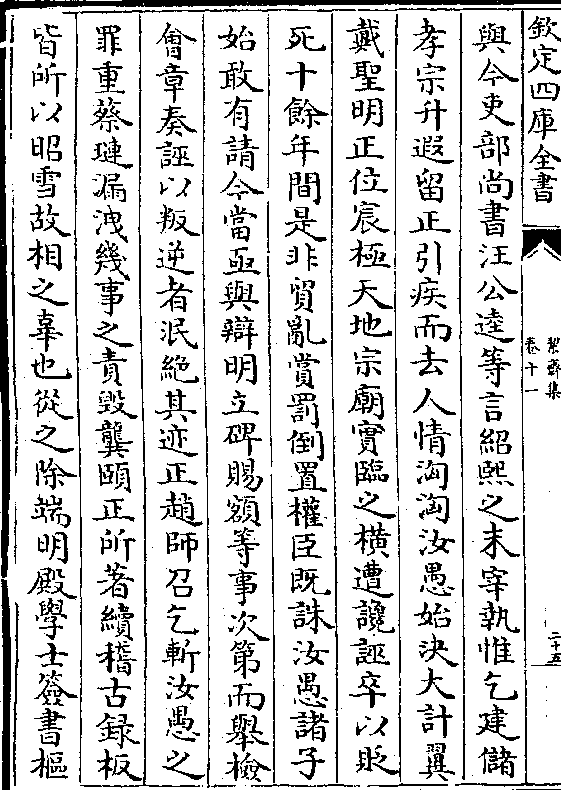 欽定四庫全書
絜齋集
卷十一
二十五
與今吏部尚書汪公逵等言紹熙之末宰執惟乞建儲
孝宗升遐留正引疾而去人情洶洶汝愚始決大計翼
戴聖明正位宸極天地宗廟實臨之橫遭讒誣卒以貶
死十餘年間是非貿亂賞罰倒置權臣既誅汝愚諸子
始敢有請今當亟與辯明立碑賜額等事次第而舉檢
會章奏誣以叛逆者泯絶其迹正趙師召乞斬汝愚之
罪重蔡璉漏洩幾事之責毀龔頤正所著續稽古録板
皆所以昭雪故相之辜也從之除端明殿學士簽書樞